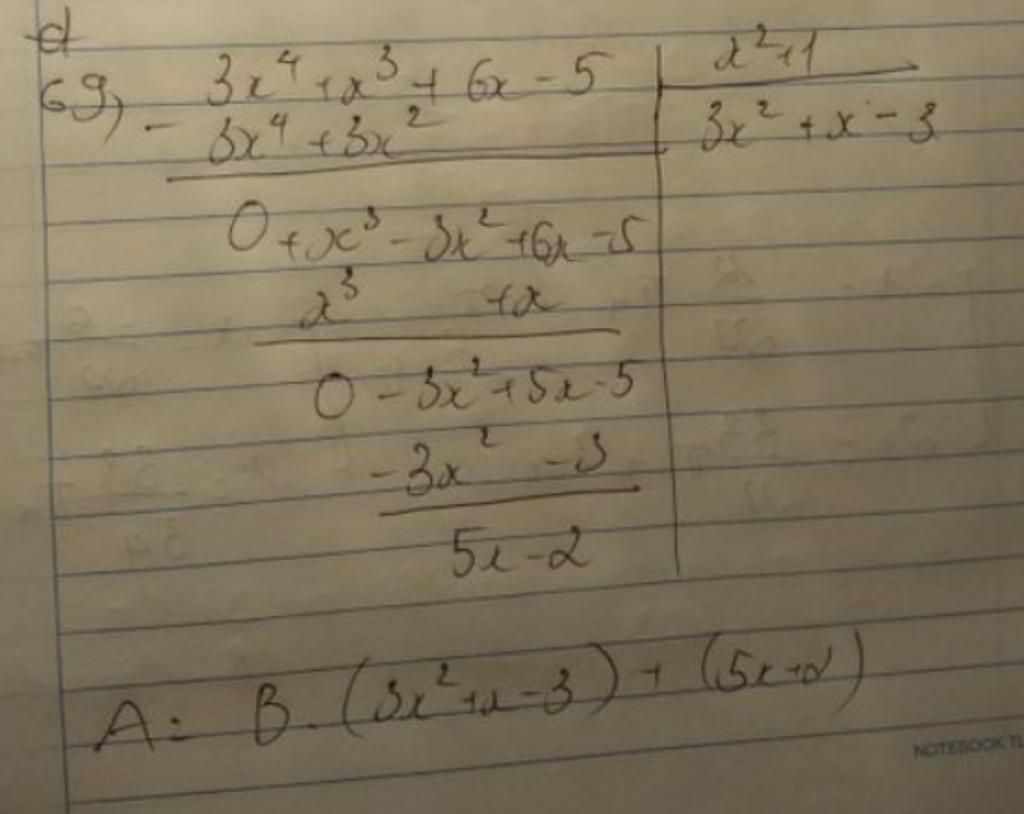 d
69,
3x⁴ + x³ + 6x - 5 | x² + 1
- 3x⁴ + 3x² | 3x² + x - 3
0 + x³ - 3x² + 6x - 5
x³ + x
0 - 3x² + 5x - 5
-3x² - 3
5x - 2
A = B. (3x² + x - 3) + (5x - 2)
NOTEBOOK TL